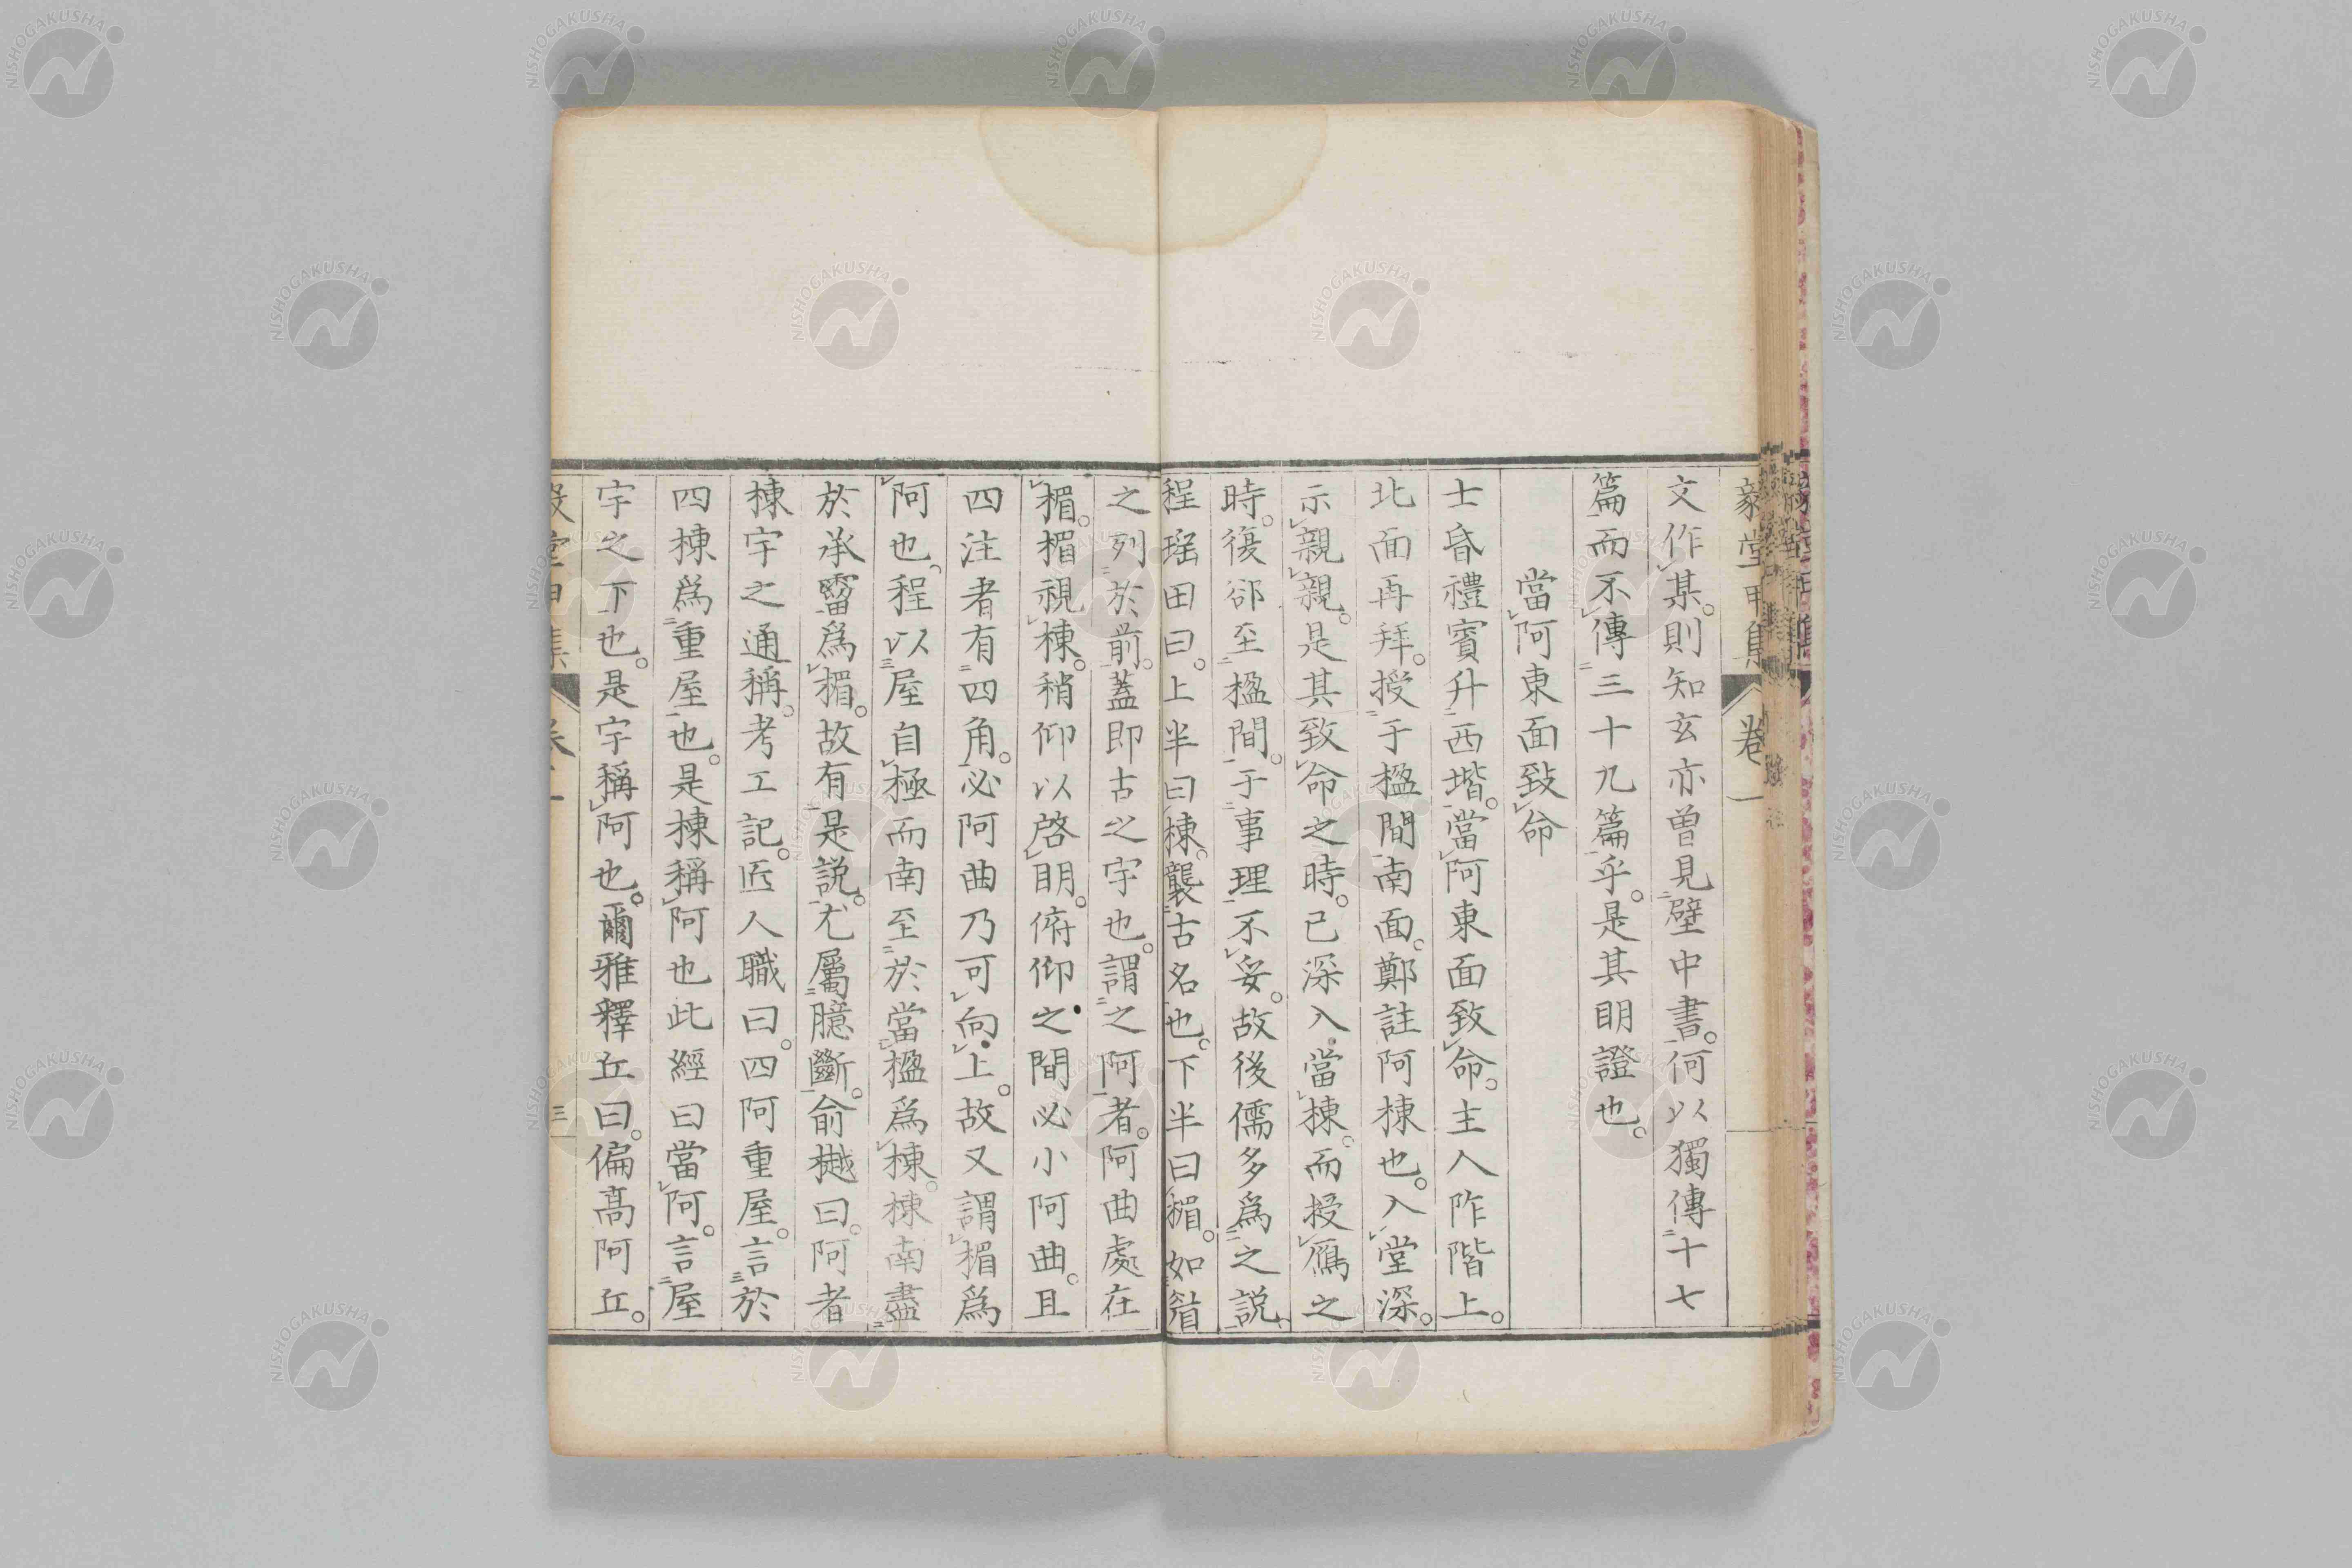 卷一
文作某。則知玄亦曾見壁中書。何以獨傳十七
篇而不傳三十九篇乎。是其明證也。
當阿東面致命
士昏禮賓升西堦。當阿東面致命。主人阼階上。
北面再拜。授于楹間南面。鄭註阿棟也。入堂深。
示親親。是其致命之時。已深入當棟。而授鴈之
時。復郤至楹間。于事理不妥。故後儒多爲之説、
程瑤田曰。上半曰棟。襲古名也。下半曰楣。如眉
之列於前。蓋即古之宇也。謂之阿者。阿曲處在
楣。楣視棟。稍仰以啓明。俯仰之間必小阿曲。且
四注者有四角。必阿曲乃可向上。故又謂楣爲
阿也。程以屋自極而南至於當楹爲棟。棟南盡
於承霤爲楣。故有是説。尤屬臆斷。俞樾曰。阿者
棟宇之通稱。考工記。匠人職曰。四阿重屋。言於
四棟爲重屋也。是棟稱阿也此經曰當阿。言屋
宇之下也。是宇稱阿也。爾雅釋丘曰。偏高阿丘。
三